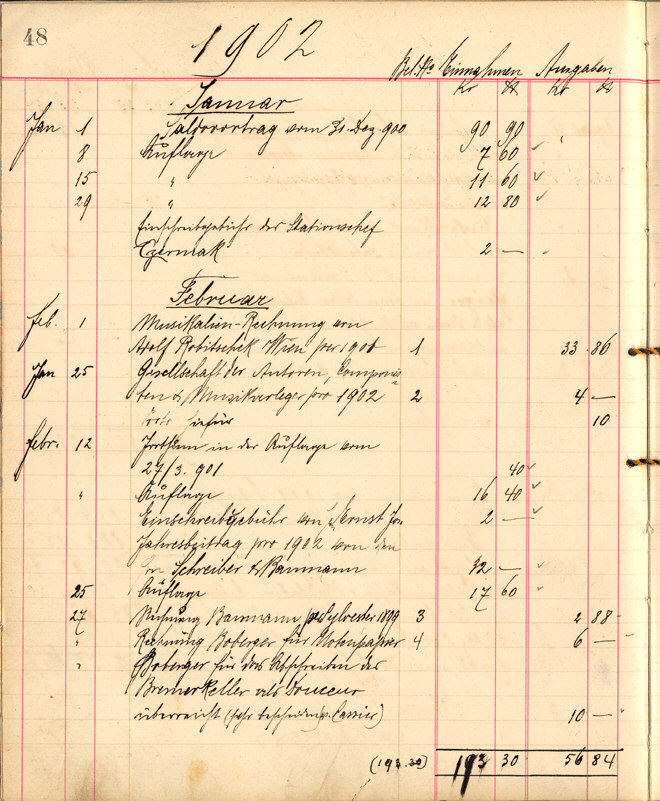 48
1902
Bel. No Einnahmen Ausgaben
Kr h Kr h
Januar
Jan 1 Saldovortrag vom 31. Dez. 900 90 90
8 Auflage 7 60
15 " 11 60
29 " 12 80
Einschreibgebühr des Stationschef
Czermak 2 —
Februar
Feb. 1 Musikalien-Rechnung von
Adolf Robitschek Wien per 1901 1 33 86
Jan 25 Gesellschaft der Autoren, Componis-
ten & Musikverleger pro 1902 2 4 —
hiefür 10
Febr. 12 Irrthum in der Auflage vom
27/3. 901 40
" Auflage 16 40
Einschreibgebühr von Ernst 2 —
Jahresbeitrag pro 1902 von den
Schreiber & Bammann 32 —
25 Auflage 17 60
27 Rechnung Bammann pro Sylvester 1899 3 2 88
" Rechnung Boberger für Notenpapier 4 6 —
" Boberger für das Abschreiben der
Bremerkeller als Douceur
überreicht 10 —
(193.30) 193 30 56 84